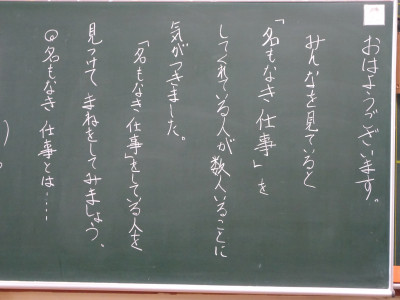 おはようございます。
みんなを見ていると
「名もなき仕事」を
してくれている人が数人いることに
気がつきました。
「名もなき仕事」をしている人を
見つけてまねをしてみましょう、
◎名もなき仕事とは……